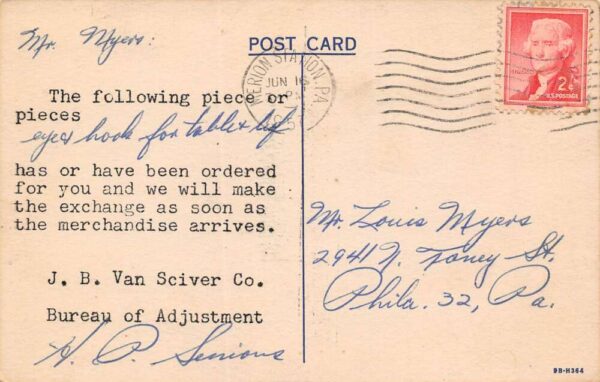 Mr. Myers:
POST CARD
MERION STATION, PA.
JUN 16
2¢
U.S. POSTAGE
The following piece or
pieces
eyes hook for table leaf
has or have been ordered
for you and we will make
the exchange as soon as
the merchandise arrives.
J. B. Van Sciver Co.
Bureau of Adjustment
H. P.
Mr. Louis Myers
2941 N. Toney St.
Phila. 32, Pa.
9B-H364